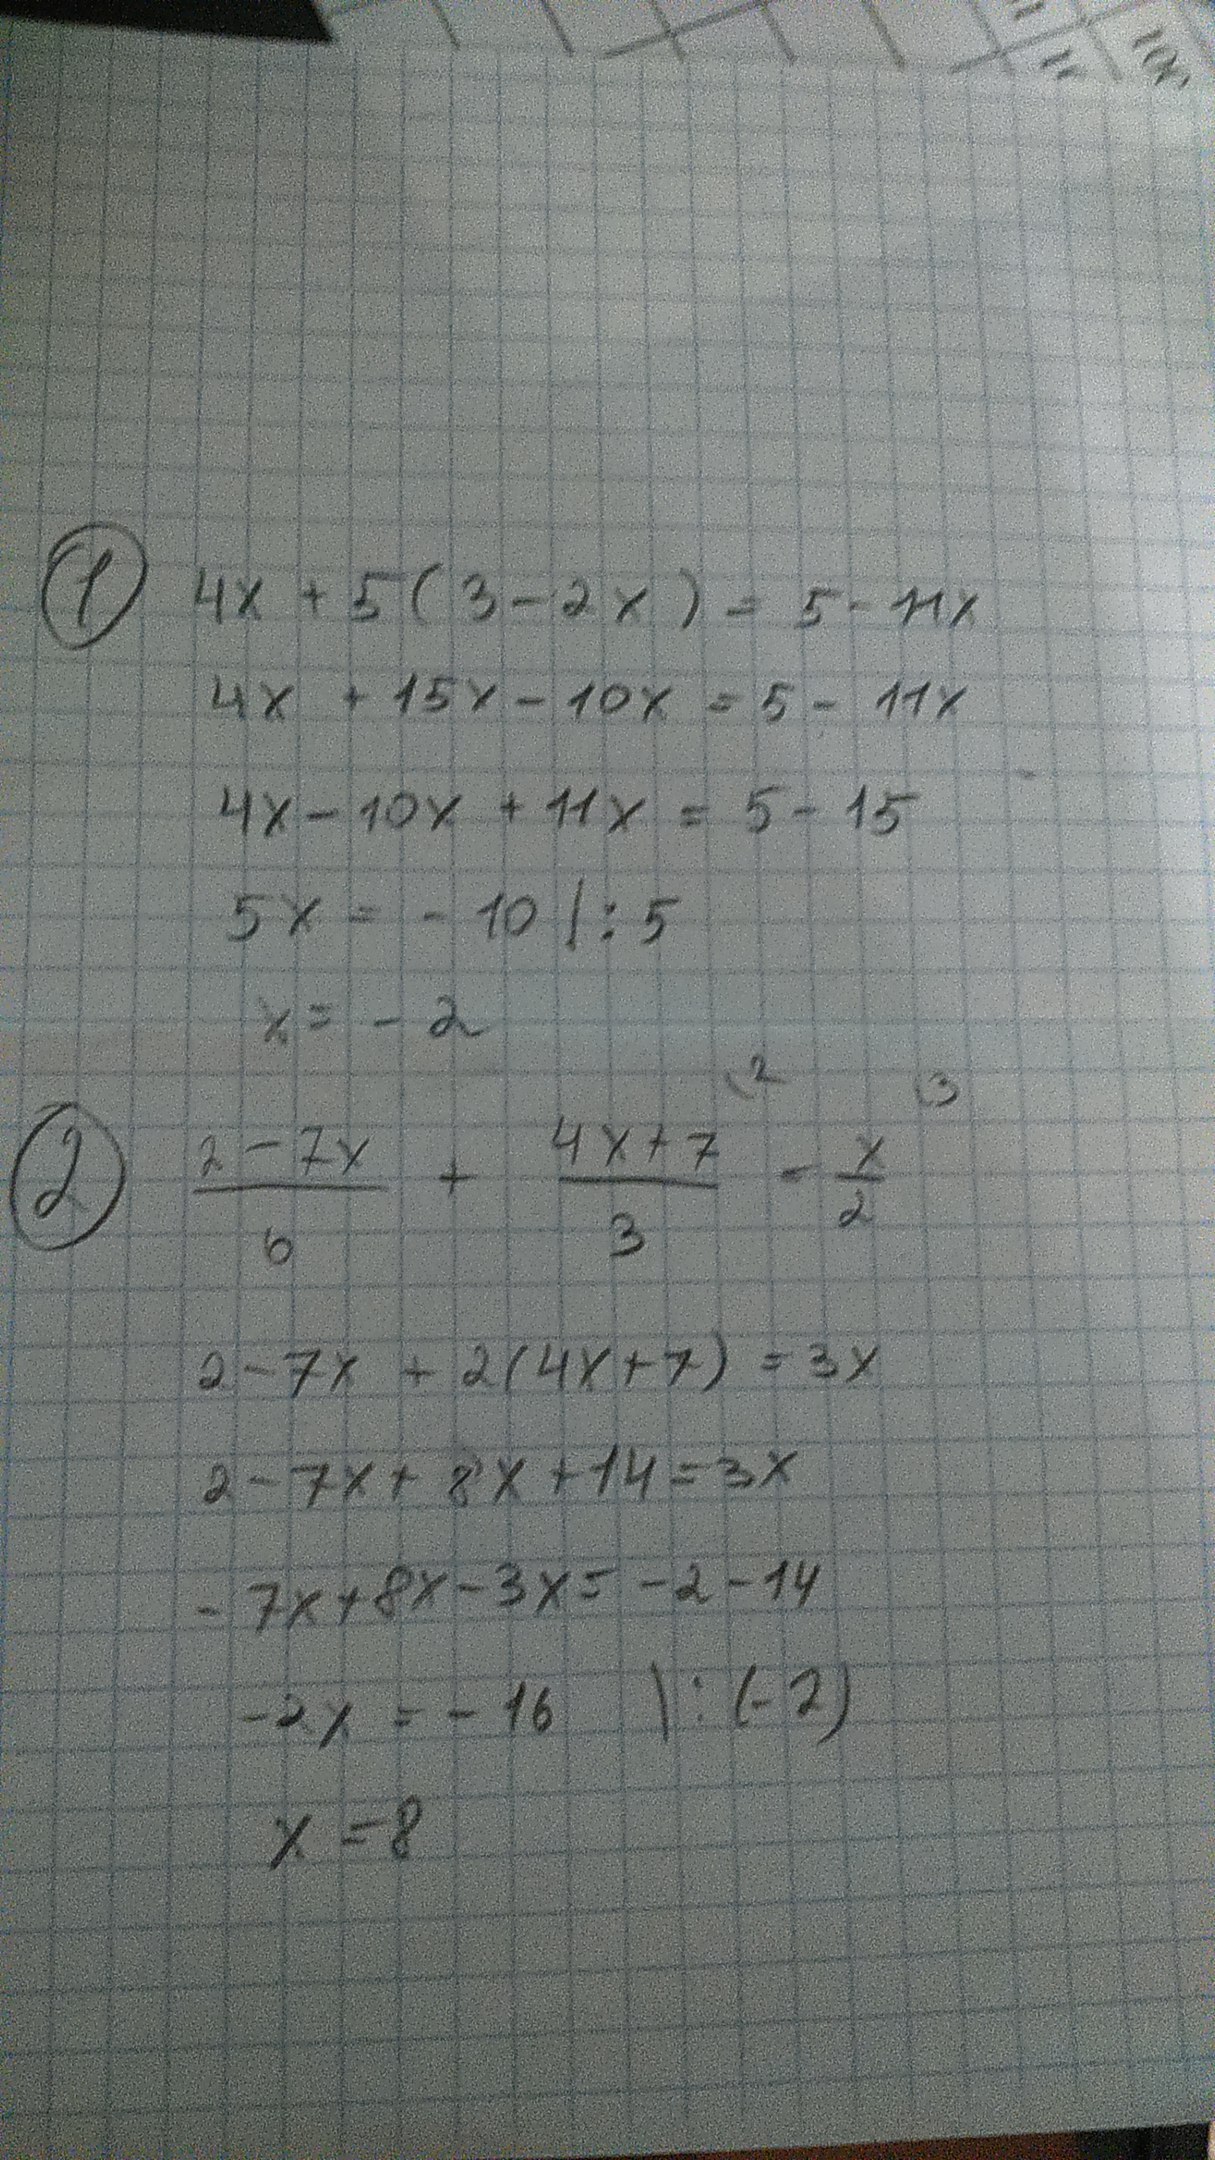 1 4x + 5(3 - 2x) = 5 - 11x
4x + 15x - 10x = 5 - 11x
4x - 10x + 11x = 5 - 15
5x = - 10 | : 5
x = - 2
2 \frac{2 - 7x}{6} + \frac{4x + 7}{3} (2 = \frac{x}{2} (3
2 - 7x + 2(4x + 7) = 3x
2 - 7x + 8x + 14 = 3x
- 7x + 8x - 3x = - 2 - 14
- 2x = - 16 \ : (- 2)
x = 8